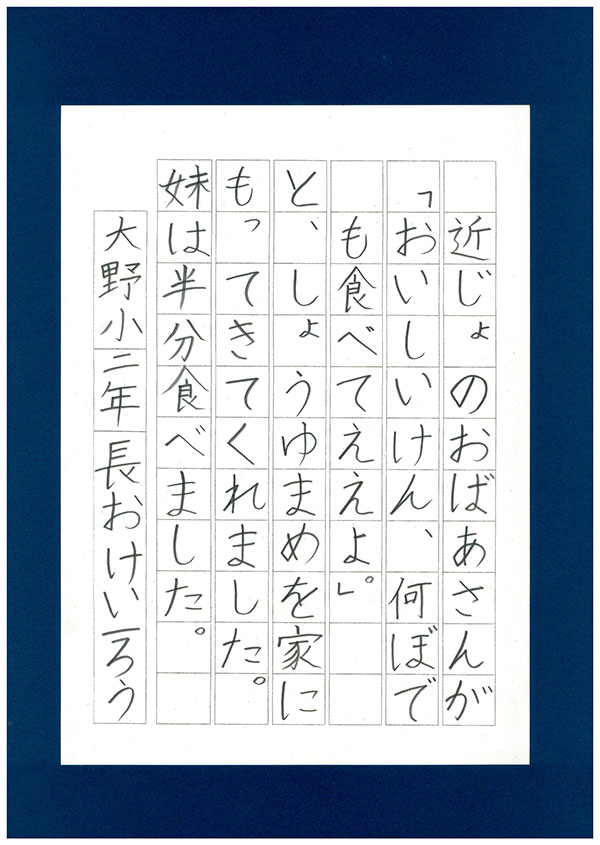 近じょのおばあさんが
「おいしいけん、何ぼで
も食べてええよ。」
と、しょうゆまめを家に
もってきてくれました。
妹は半分食べました。
大野小二年 長おけい一ろう